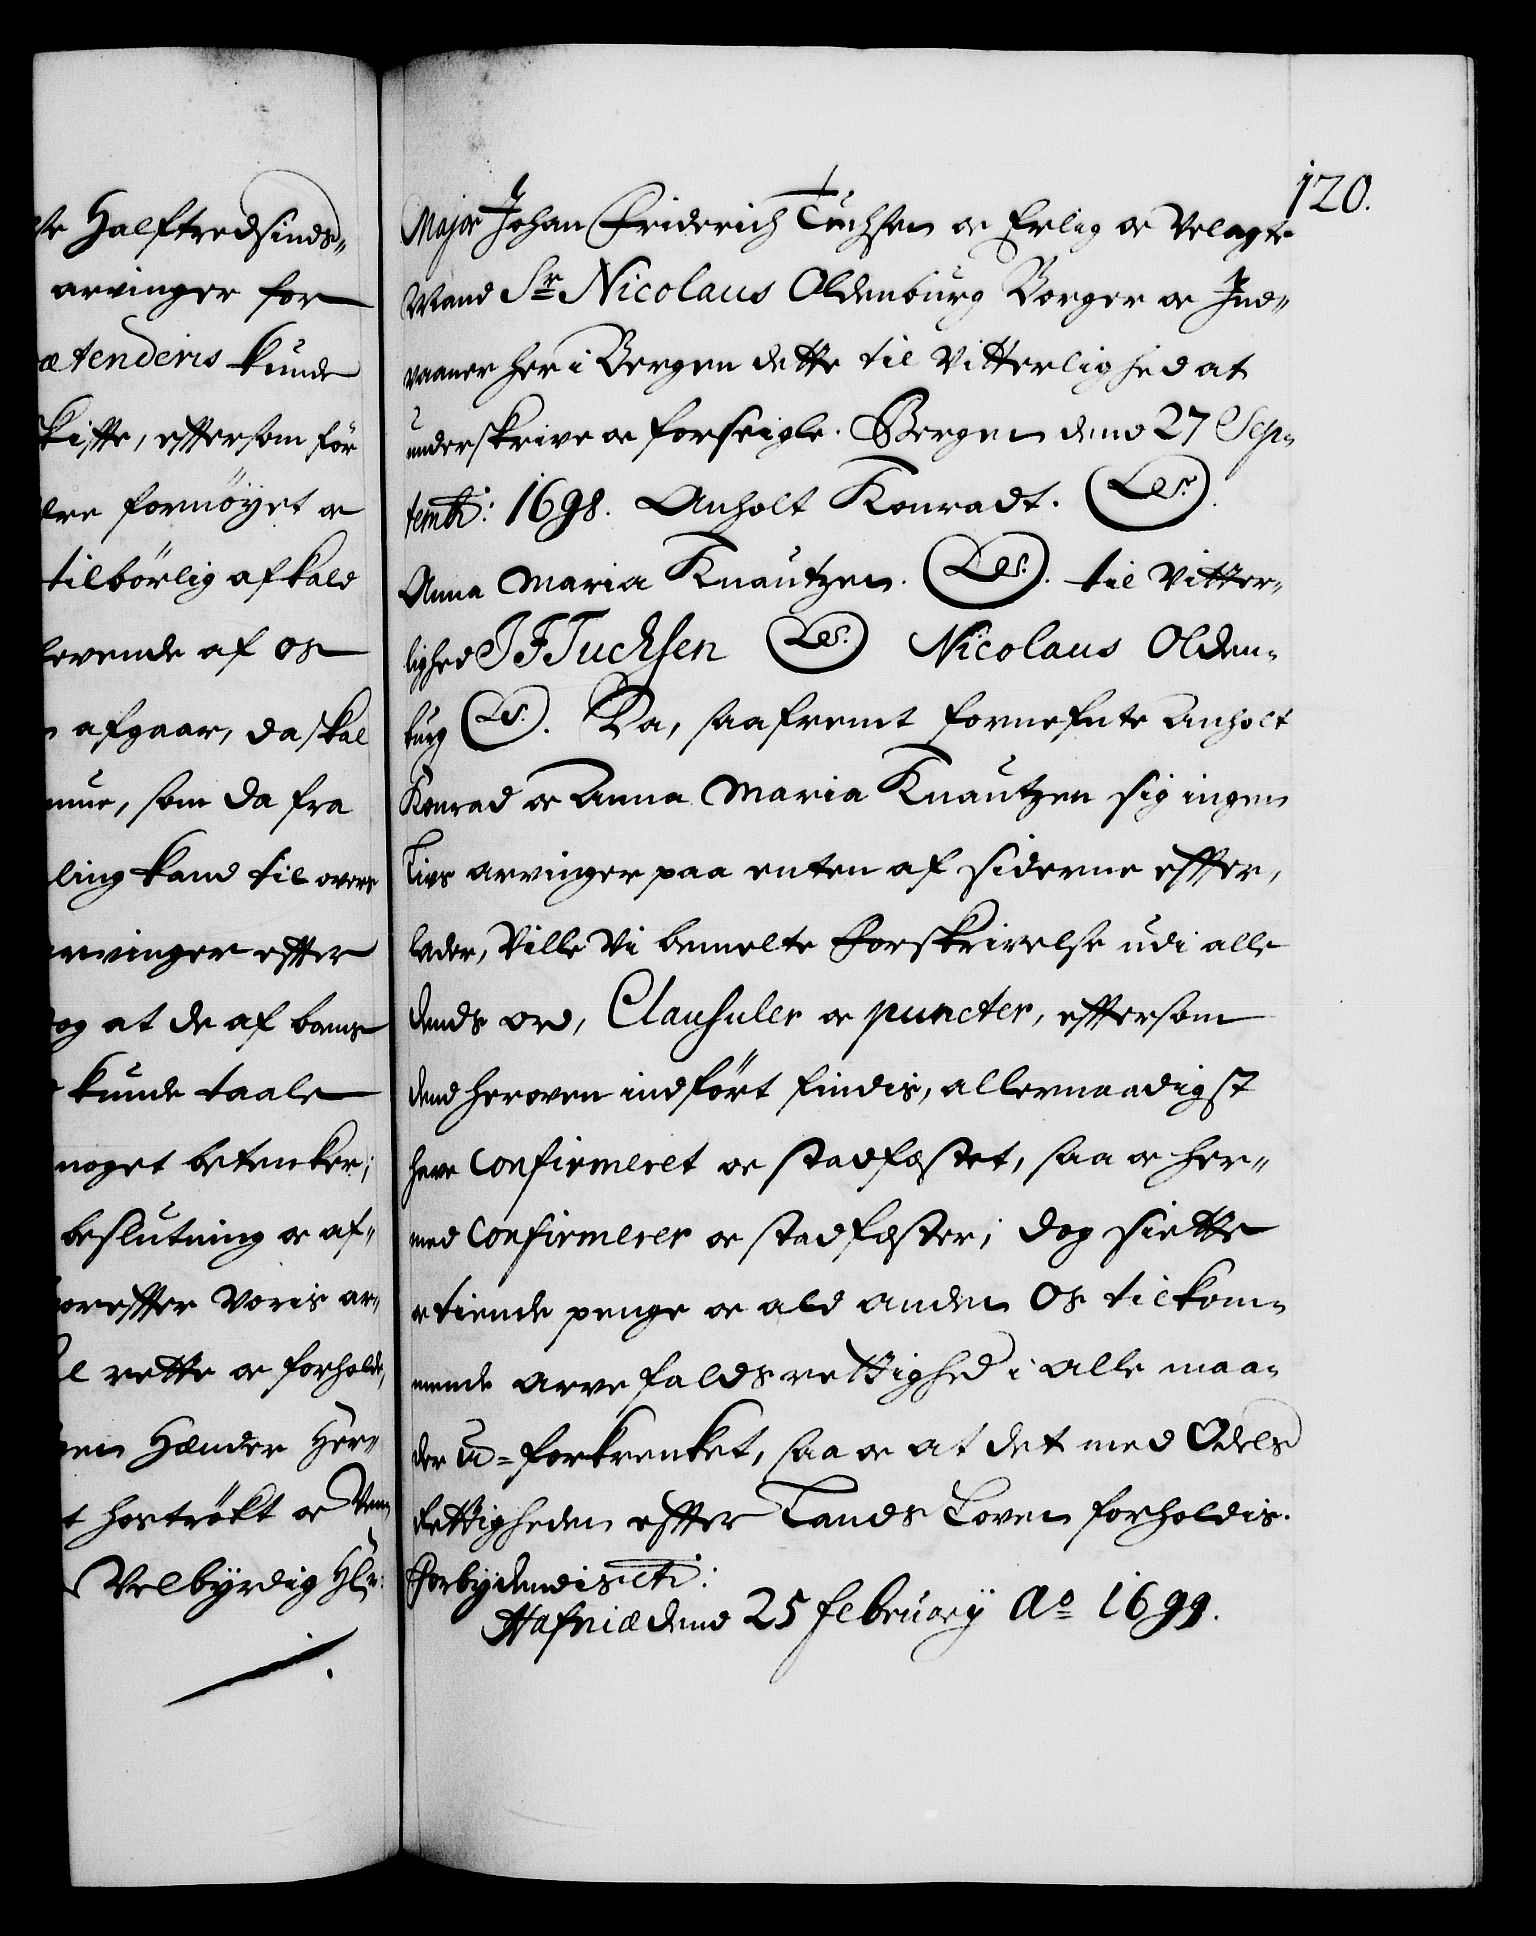 120.
te Halftredsinds-
arvinger for
ætenderis kunde
skiffte, eftersom för
dre fornöyet oc
tilbörlig afkald
levende af os
afgaar, da skal
mue, som da fra
ling kand til overs
arvinger effter
og at de af bemte
kunde taale
noget betencker;
beslutning oc af-
oreffter voris ar-
l rette oc forholde,
en Hænder Her-
t hoströkt oc ven
Velbyrdig Hr:
Major Johan Friderich Tuchsen oc Erlig oc Velagte
Mand Sr Nicolaus Oldenburg Borger oc Ind-
vaaner her i Bergen dette til Vitterlighed at
underskrive oc forseigle. Bergen dend 27 Sep-
temb: 1698. Anholt Konradt. (L.S.).
Anna Maria Knautzen. (L.S.). til Vitter-
lighed J F Tuchsen (L.S.) Nicolaus Olden-
burg (L.S.). Da, saafremt fornefnte Anholt
Konrad oc Anna Maria Knautzen sig ingen
Livs arvinger paa enten af siderne effter-
lader, Ville Vi bemelte Forskrivelse udi alle
dends ord, Clausuler oc puncter, effttersom
dend heroven indfört findis, allernaadigst
have Confirmeret oc stadfæstet, saa oc her-
med Confirmerer oc stadfæster; dog siette
oc tiende penge oc ald anden Os tilkom-
mende arvefalds rettighed i alle maa-
der u-forkrenket, saa oc at det med Odels
Rettigheden effter Lands Loven forholdis.
Forbydendis etc:
Hafniæ dend 25 february Ao 1699.